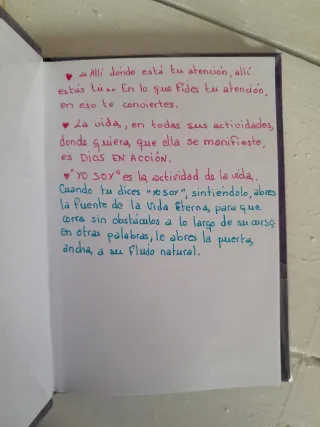 ♥ "Allí dónde está tu atención, allí
estás tú... En lo que fides tu atención,
en eso te conviertes.
♥ La vida,, en todas sus actividades,
donde quiera, que ella se manifieste,
es DIOS EN ACCIÓN.
♥ "YO SOY" es la actividad de la vida,.
Cuando tu dices "YO SOY", sintiéndolo, abres
la fuente de la Vida Eterna, para que
corra sin obstáculos a lo largo de su curso
en otras palabras, le abres la puerta,
ancha, a su fludo natural.